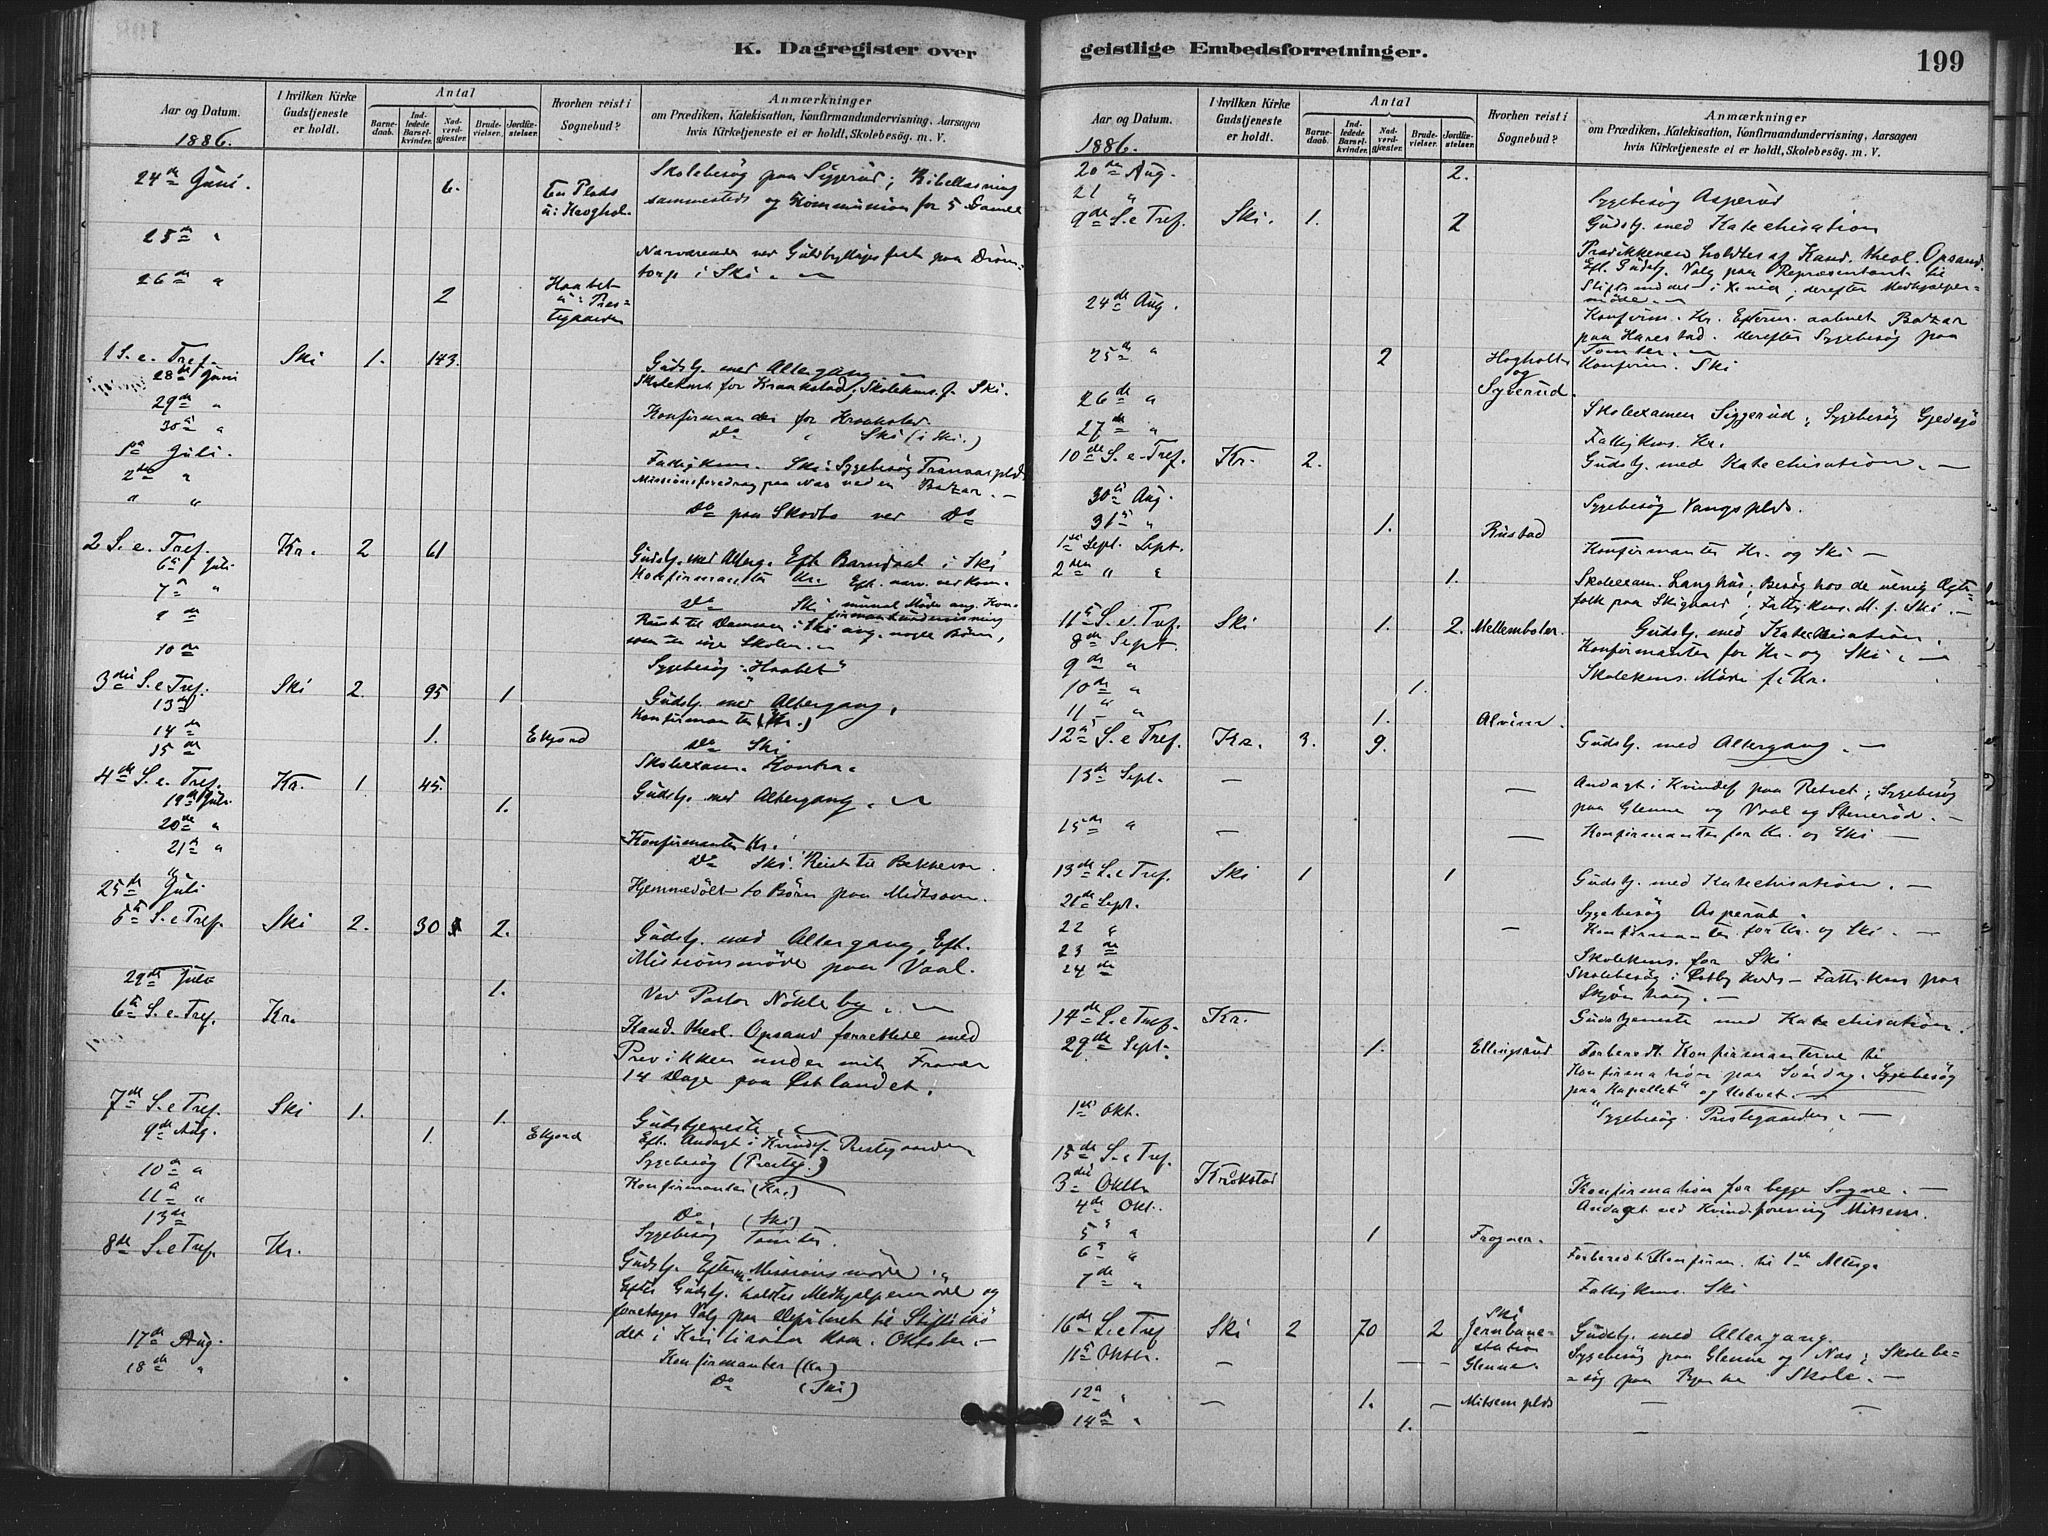 K. Dagregister over geistlige Embedsforretninger.
199
Aar og Datum.
I hvilken Kirke Gudstjeneste er holdt.
Antal
Barnedaab.
Indledede Barselkvinder.
Nadverdgjæster.
Brudevielser.
Jordfæstelser.
Hvorhen reist i Sognebud?
Anmærkninger
om Prædiken, Katekisation, Konfirmandundervisning, Aarsagen
hvis Kirketjeneste ei er holdt, Skolebesøg. m. V.
1886.
24de Juni. 6. En Plads u: Haughol. Skolebesøg paa Siggerud; Bibellæsning
sammesteds og Kommunion for 5 Gamle
25de " Nærværende ved Guldbryllupsfest paa Drøm-
torp i Ski.
26de " 2 Haabet u: Præstegaarden
1 S. e. Tref. Ski 1. 143. Gudstj. med Altergang
28de Juni Skolekom. for Kraakstad, Skolekms. f. Ski.
29de " Konfirmander for Kraakstad
30te " Do " Ski (i Ski.)
1ste Juli. Fattigkms. Ski: Sygebesøg
2den " Missionsforedrag paa Næs ved en Bazar.
" " Do paa Skodbo ved Do
2 S. e. Tref. Kr. 2 61 Gudstj. med Alterg. Eft. Barnedaab i Ski
6te Juli Konfirmanter Kr. Eft. nærv. ved kom-
7de " Do Ski munal Møde ang. Kon-
firmantundervisning
9de Reist til Dammen i Ski ang. nogle Børn,
10de Sygebesøg "Haabet"
3die S. e Tref. Ski 2. 95 1. Gudstj. med Altergang,
13de Konfirmanter (Kr.)
14de 1. Ekjord Do Ski
15de Skoleexam. Kontra.
4de S. e. Tref. Kr. 1. 45. Gudstj. med Altergang.
19de Juli. 1.
20de " Konfirmanter Kr.
21de " Do Ski. Reist til Bekkevar.
25de Juli Hjemmedøbt to Børn paa Midtsem.
5te S. e Tref. Ski 2. 30 2. Gudstj. med Altergang, Eft.
Missionsmøde paa Vaal.
29de Juli 1. Ved Pastor Nökleby.
6te S. e. Tref. Kr. Kand. theol. Opsand forrettede med
Prædikken under mit Fravær
14 Dage paa Østlandet.
7de S. e Tref. Ski 1. 1. Gudstjeneste.
9de Aug. 1. Ekjord Eft. Andagt i Kvindef. Prestegaarden
Sygebesøg (Prestg.)
10de " Konfirmanter (Kr.)
11te " Do (Ski)
13de Sygebesøg Tomter.
8de S. e Tref. Kr. Gudstj. Efterm. Missionsmøde.
Efter Gudstj. holdtes Medhjælpermøde og
foretages Valg paa Deputeret til Stiftsmø-
det i Kristiania Kom. Oktober.
17de Aug. Konfirmanter (Kr.)
18de " Do (Ski)
Aar og Datum.
I hvilken Kirke Gudstjeneste er holdt.
Antal
Barnedaab.
Indledede Barselkvinder.
Nadverdgjæster.
Brudevielser.
Jordfæstelser.
Hvorhen reist i Sognebud?
Anmærkninger
om Prædiken, Katekisation, Konfirmandundervisning, Aarsagen
hvis Kirketjeneste ei er holdt, Skolebesøg. m. V.
1886.
20de Aug. 2.
21 " Sygebesøg Asperud
9de S. e Tref. Ski. 1. 2 Gudstj. med Katechisation
Prædikkenen holdtes af Kand. theol. Opsand.
Eft. Gudstj. Valg paa Repræsentant til
Stiftsmødet i Xania; derefter Medhjælper-
møde.
24de Aug. Konfirm. Kr. Efterm. aabnet Bazar
paa Harestad. derefter Sygebesøg paa
Tomter.
25de " 2 Hogholt og Syverud. Konfirm. Ski
26de " Skoleexamen Siggerud; Sygebesøg Gjedsjø
27de " Fattigkms. Kr.
10de S. e. Tref. Kr. 2. Gudstj. med Katechisation.
30te Aug. Sygebesøg Vangsplds.
31te " 1. Rustad
1ste Sept. Konfirmanter Kr. og Ski
2den " 1. Skoleexam. Langhus; Besøg hos de uenig Ægte-
folk paa Skigaard; Fattigkms. M. f. Ski.
11te S. e. Tref. Ski 1. 2. Mellembøler. Gudstj. med Katechisation.
8de Sept. Konfirmanter for Kr. og Ski.
9de " Skolekms. Møde f. Kr.
10de " 1.
11te " 1. Alvim.
12te S. e Tref. Kr. 3. 9. Gudstj. med Altergang.
13de Sept. Andagt i Kvindef paa Retvet; Sygebesøg
paa Glenne og Vaal og Stenerød.
15de " Konfirmanter for Kr. og Ski
13de S. e Tref. Ski 1 1 Gudstj. med Katechisation.
20de Sept. Sygebesøg Asperud.
22 " Konfirmanter for Kr. og Ski.
23de Skolekms. for Ski
24de Skolebesøg i Østby Kreds – Fattigkms paa
14de S. e Tref. Kr. Gudstjeneste med Katechisation.
29de Sept. 1. Ellingsrud Forberedt Konfirmanterne til
Konfirmation paa Søndag. Sygebesøg
paa "Kapellet" og Retvet.
1ste Okt. Sygebesøg. Prestegaarden.
15de S. e Tref.
3die Oktbr Kråkstad Konfirmation for begge Sogne.
4de Okt. Andagt ved Kvindeforening Mitsem.
5te " 1 Frogner.
6te " Forberedt Konfirm. til 1ste Alterg.
7de " Fattigkms. Ski
16de S. e Tref Ski 2 70 2 Ski Jernbanestation Gudstj. med Altergang.
11te Oktbr. Glenne Sygebesøg paa Glenne og Næs; Skolebe-
søg paa Bjerke Skole.
12te " 1. Mitsem plds
14de " 1.